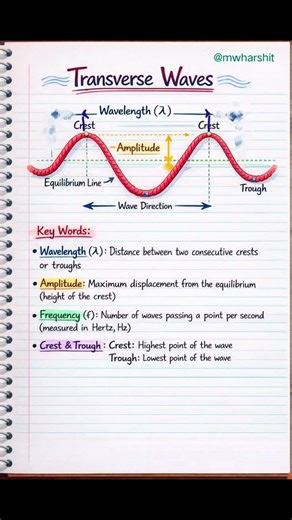 @mwharshit
Transverse Waves
Wavelength (λ)
Crest Crest
Amplitude
Equilibrium Line
Trough
Wave Direction
Key Words:
• Wavelength (λ): Distance between two consecutive crests
or troughs
• Amplitude: Maximum displacement from the equilibrium
(height of the crest)
• Frequency (f): Number of waves passing a point per second
(measured in Hertz, Hz)
• Crest & Trough: Crest: Highest point of the wave
Trough: Lowest point of the wave